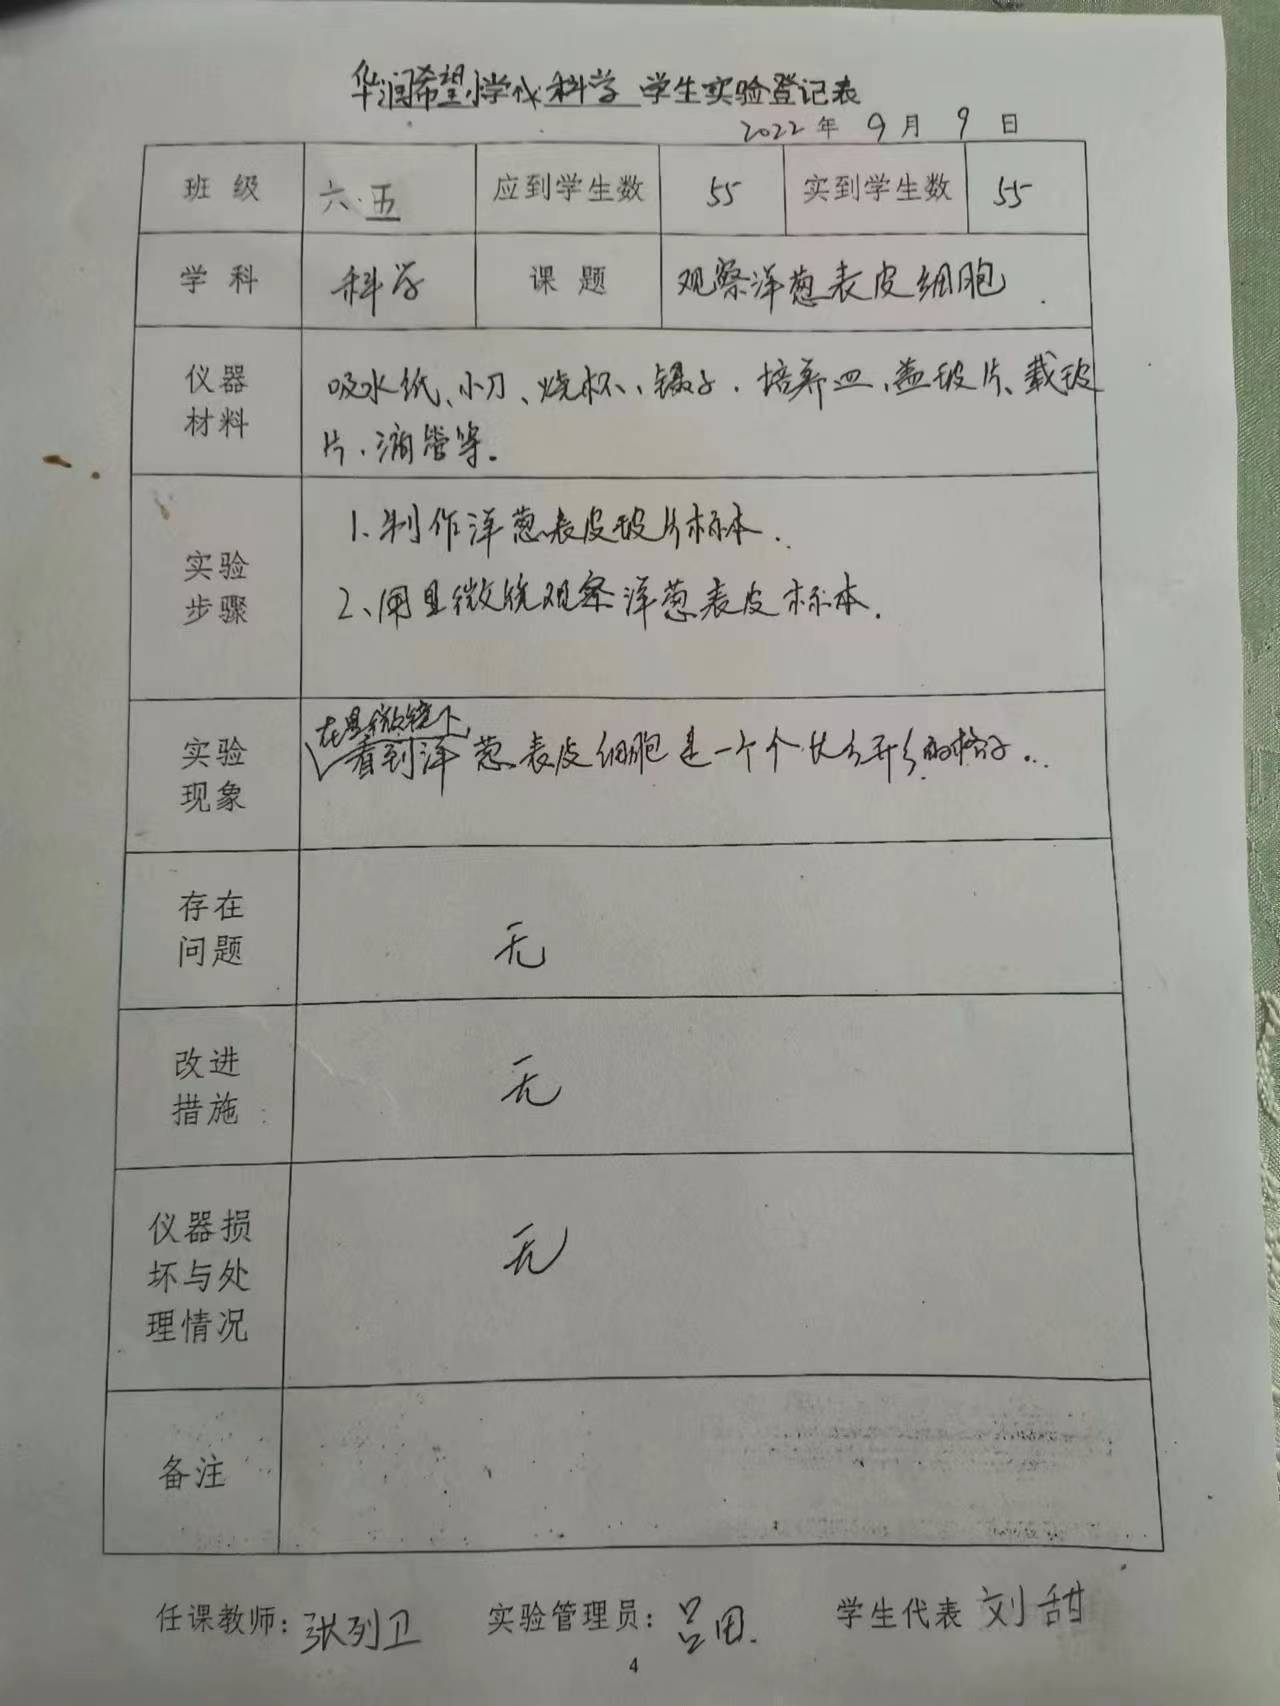 华润希望小学 科学 学生实验登记表
2022 年 9 月 9 日
班 级 六.五 应到学生数 55 实到学生数 55
学 科 科学 课 题 观察洋葱表皮细胞
仪器
材料
吸水纸、小刀、烧杯、镊子、培养皿、盖玻片、载玻
片、滴管等.
实验
步骤
1、制作洋葱表皮玻片标本.
2、用显微镜观察洋葱表皮标本.
实验
现象
在显微镜下
看到洋葱表皮细胞是一个个长方形的格子...
存在
问题
无
改进
措施
无
仪器损
坏与处
理情况
无
备注
任课教师: 张列卫 实验管理员: 吕田. 学生代表 刘甜
4